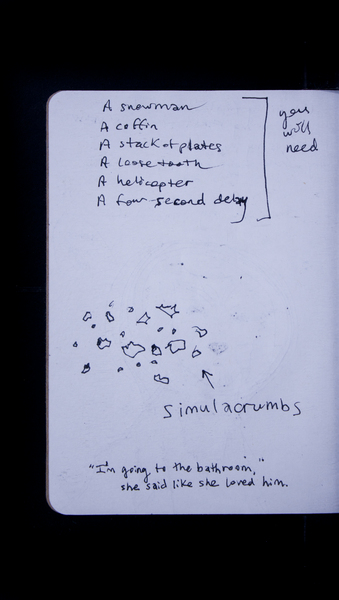 A snowman
A coffin
A stack of plates
A loose tooth
A helicopter
A four second delay
you
will
need
simulacrumbs
"I'm going to the bathroom,"
she said like she loved him.